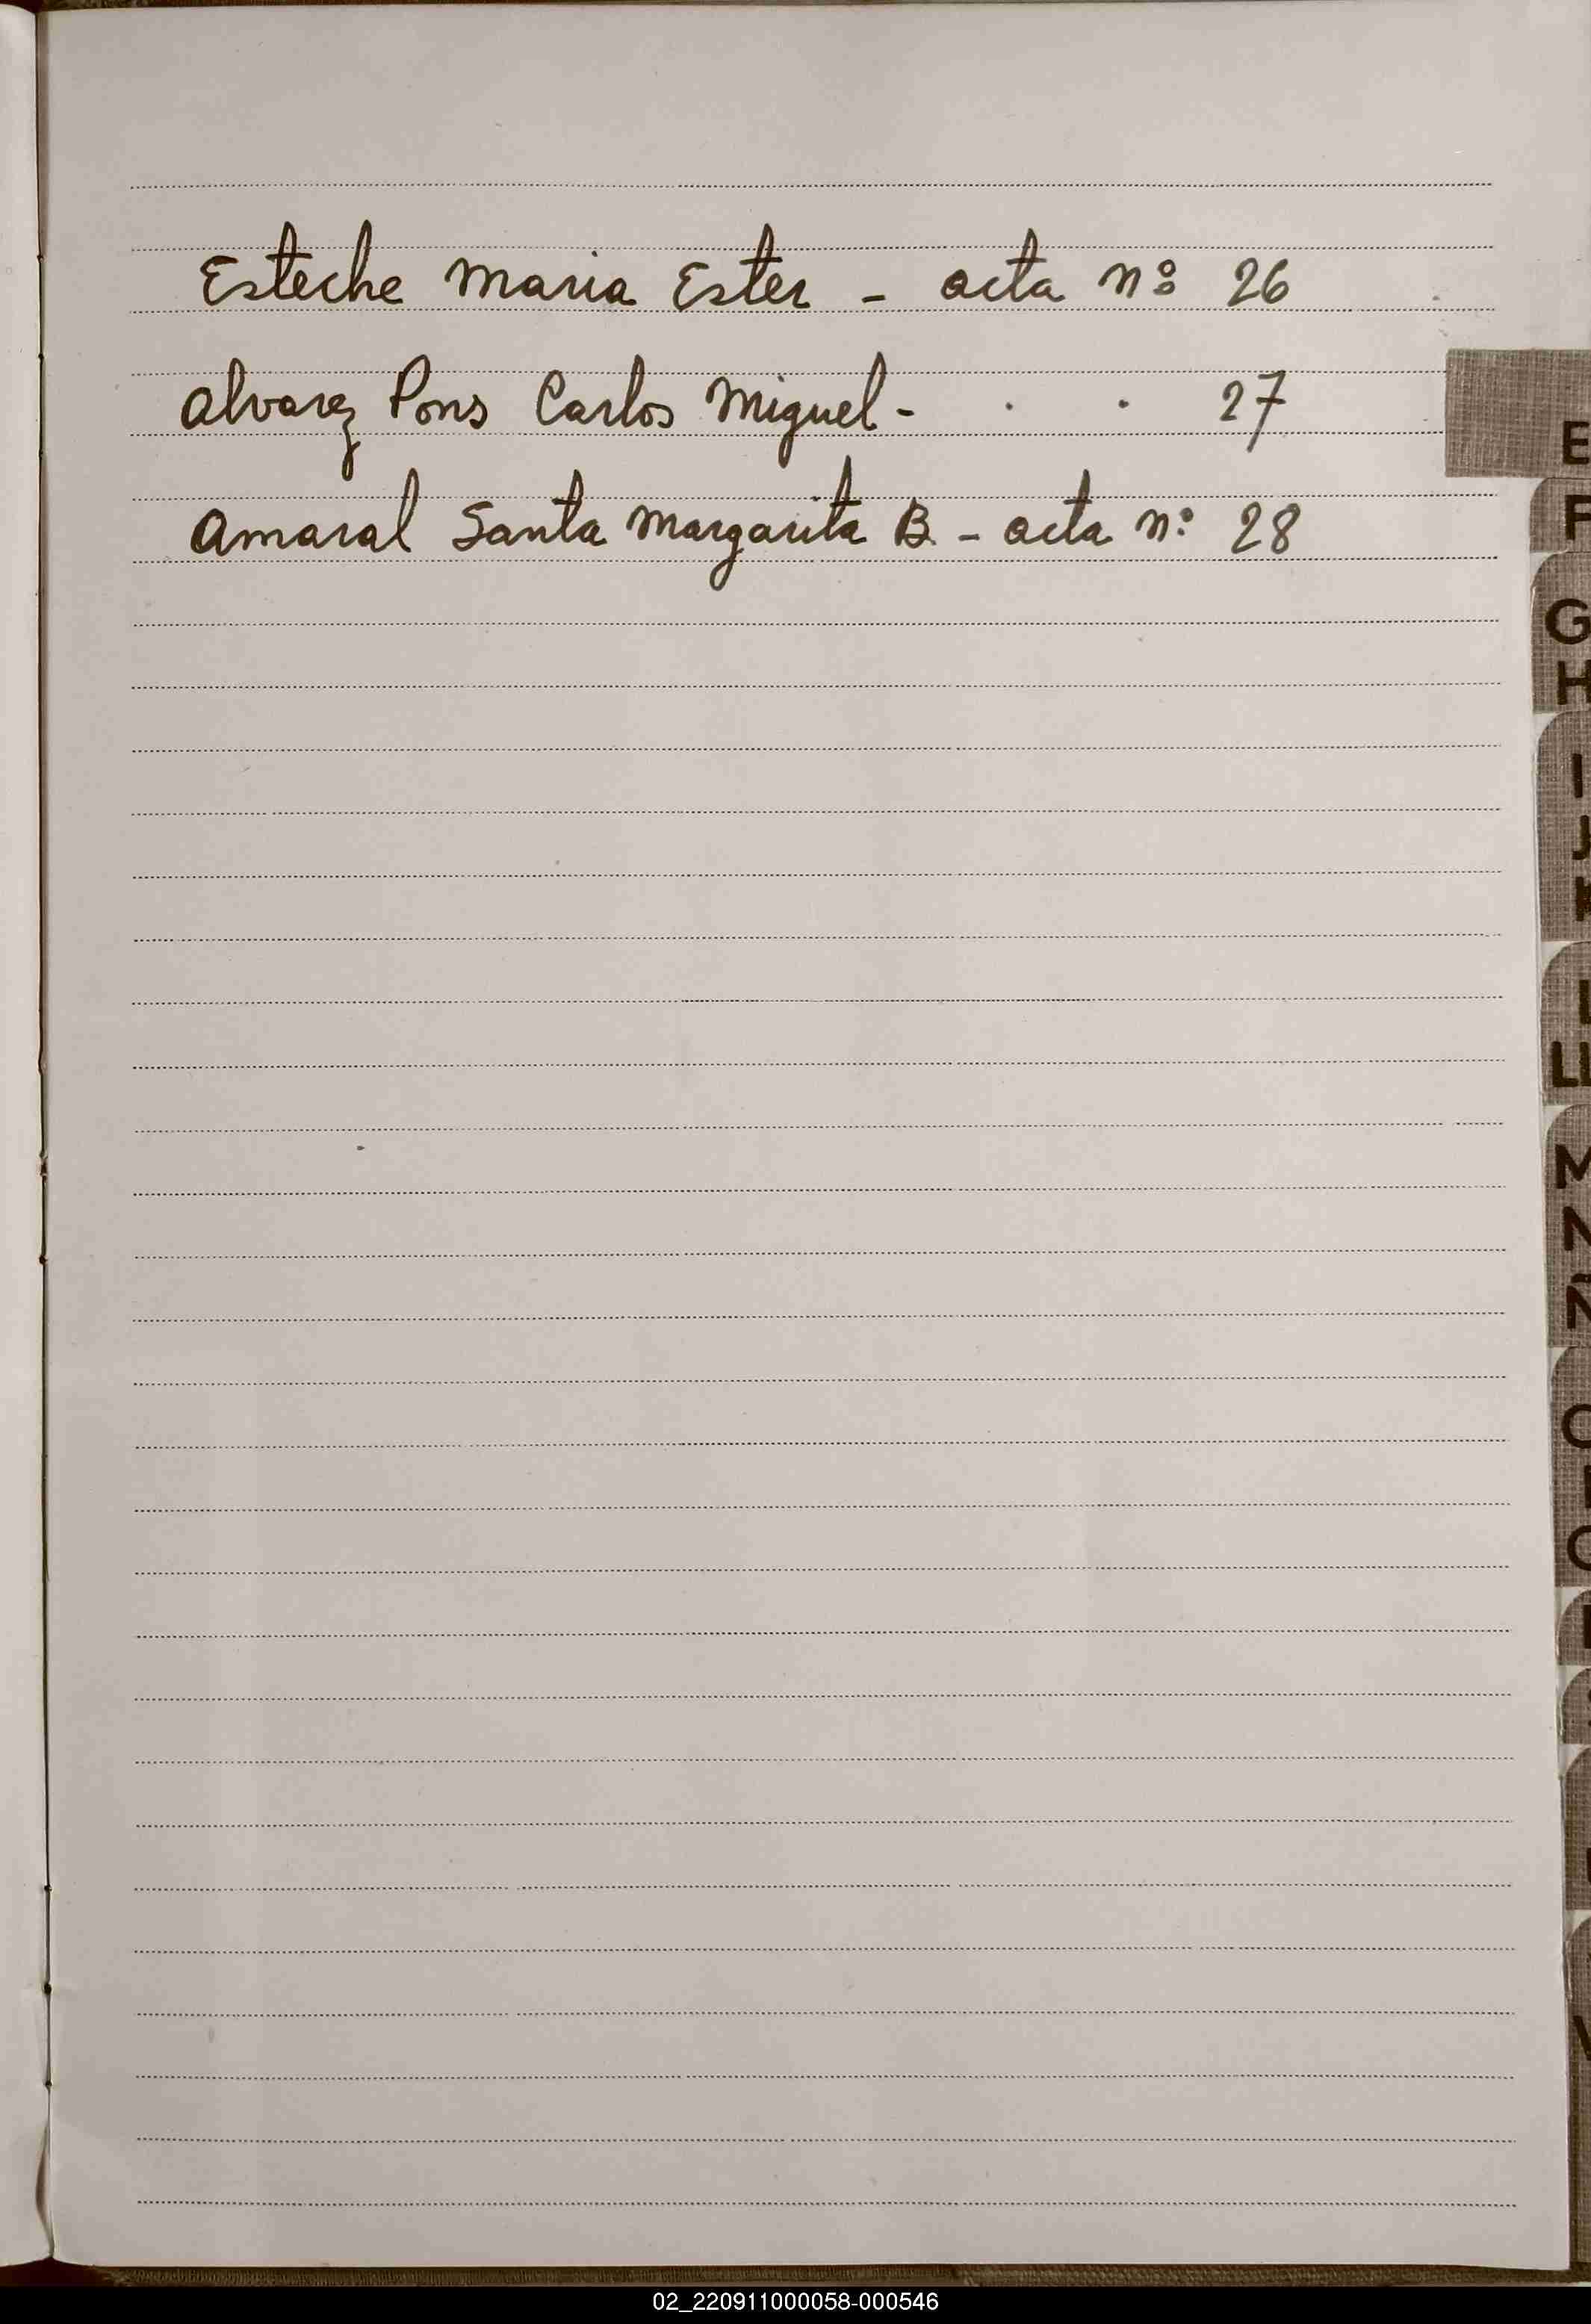 Esteche Maria Ester - acta nº 26
Alvarez Pons Carlos Miguel - . . 27
Amaral Santa Margarita B. - acta nº 28
E
F
G
H
I
J
K
L
LL
M
N
Ñ
O
02_220911000058-000546